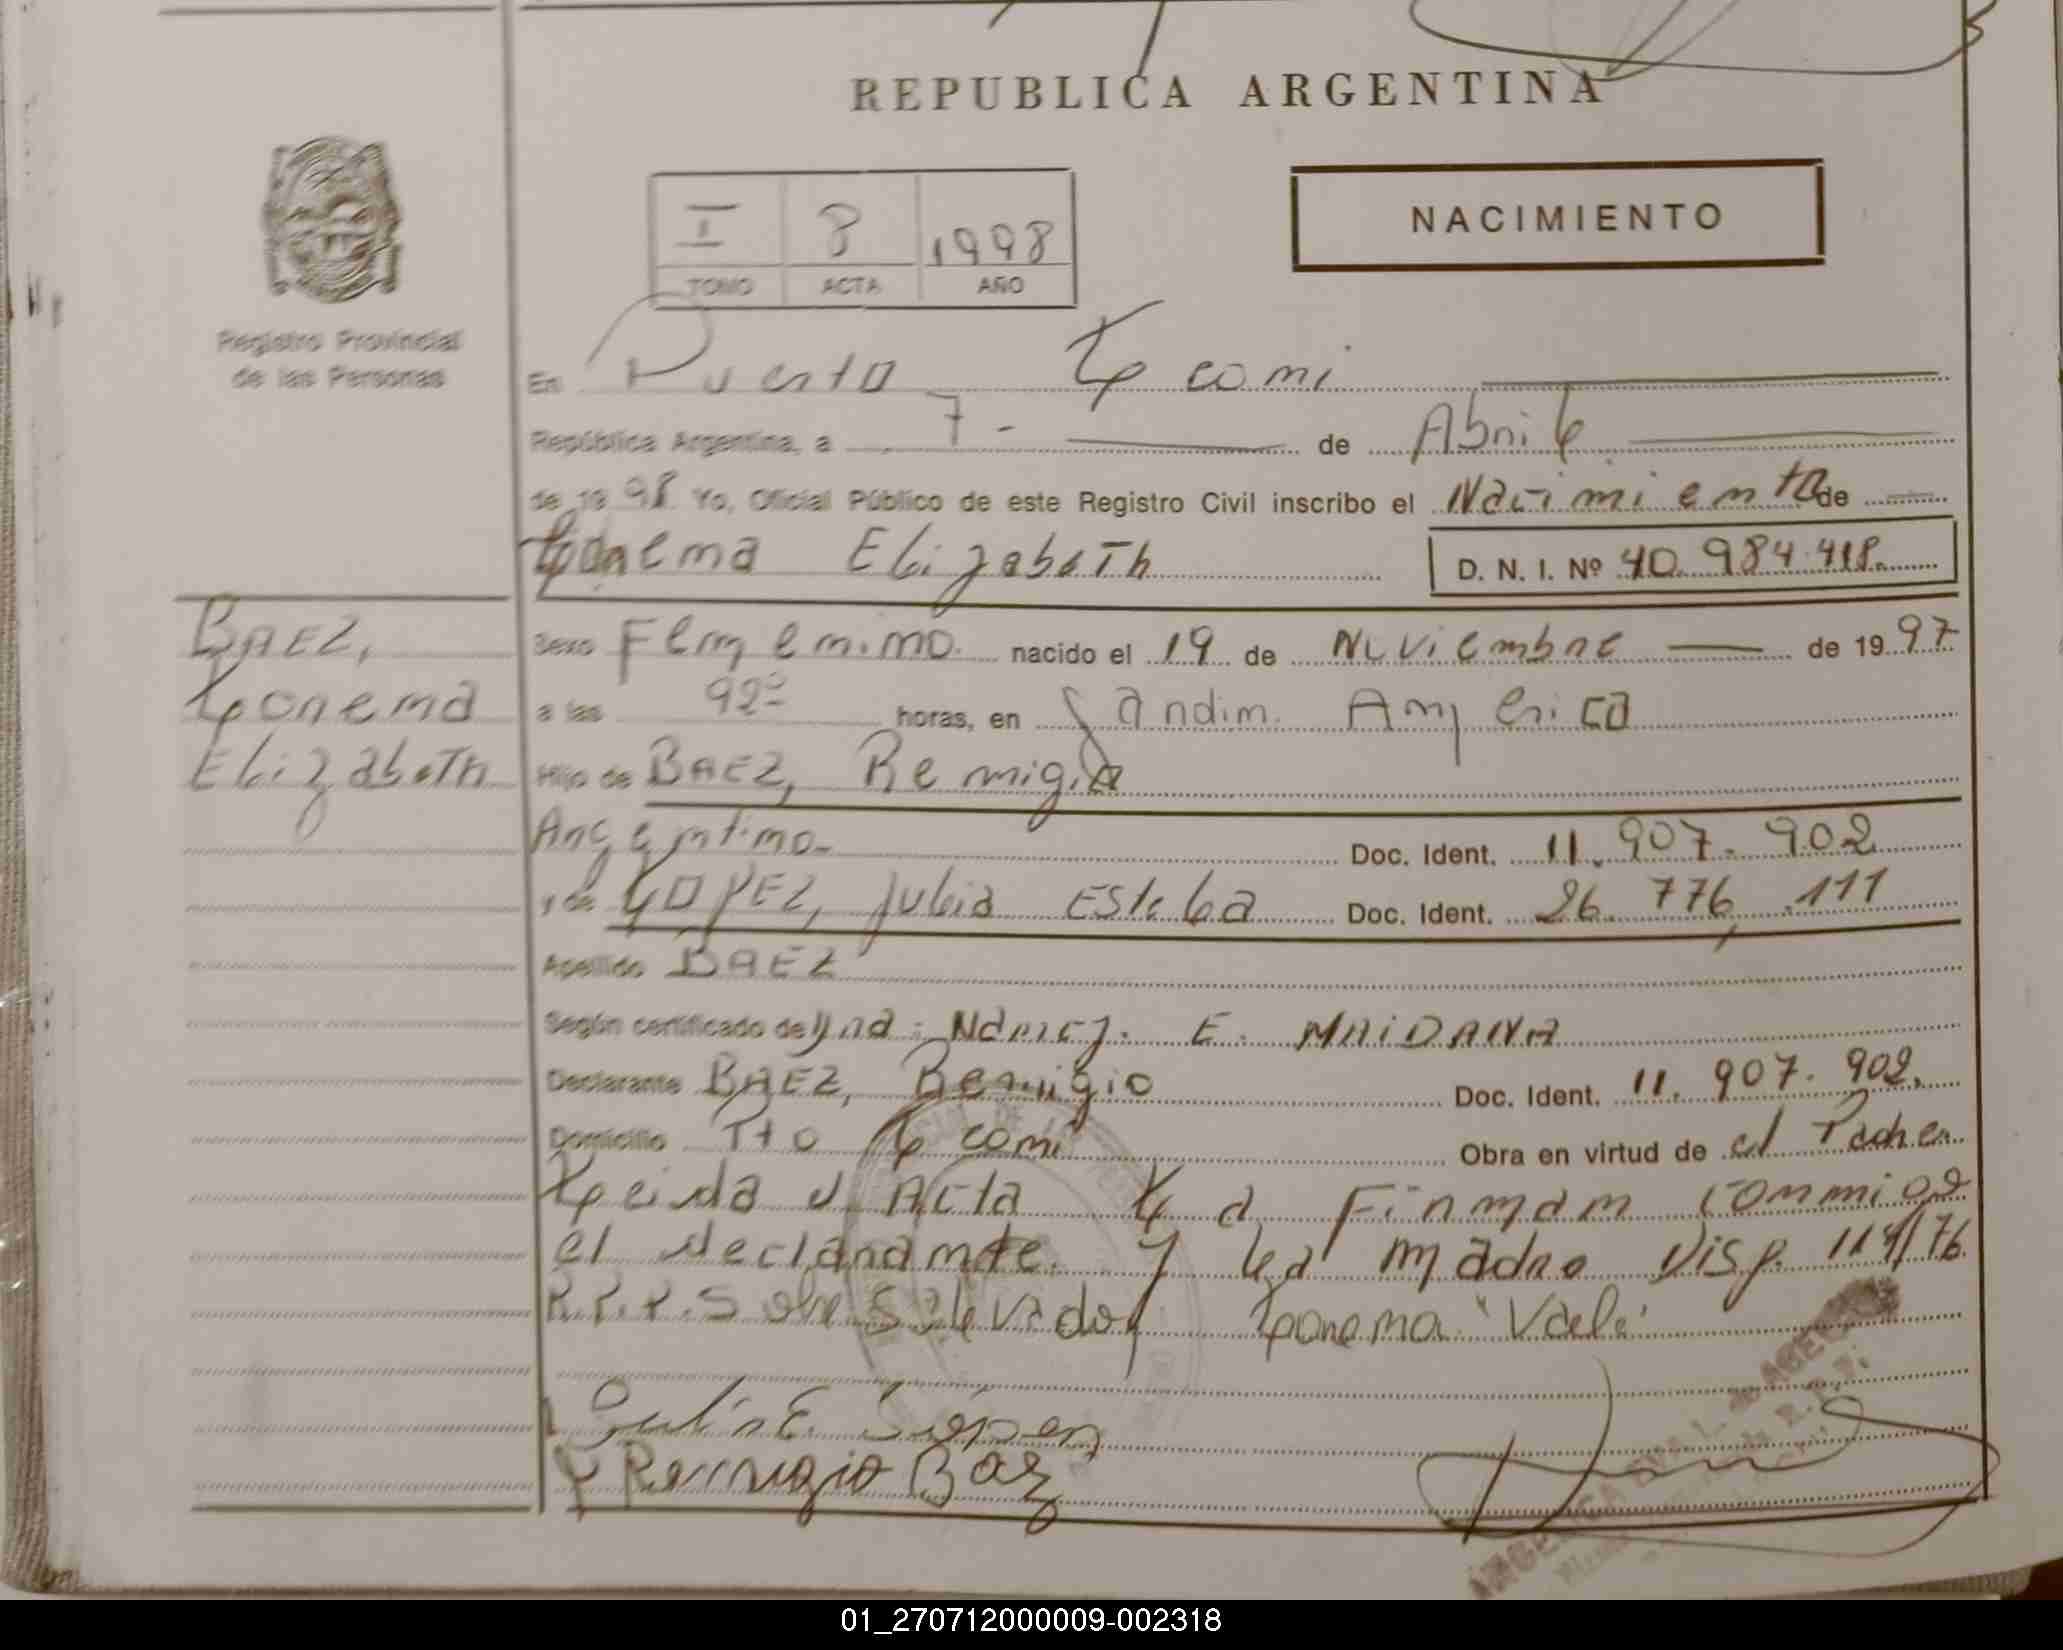 REPUBLICA ARGENTINA
I 8 1998
TOMO ACTA AÑO
NACIMIENTO
Registro Provincial
de las Personas
En Puerto Leoni
República Argentina, a 7 - de Abril
de 1998 Yo, Oficial Público de este Registro Civil inscribo el Nacimiento de
Lorena Elizabeth D. N. I. Nº 40.984.418.
BAEZ,
Lorena
Elizabeth
Sexo Femenino. nacido el 19 de Noviembre de 1997
a las horas, en Jardin America
Hijo de BAEZ, Remigio
Argentino- Doc. Ident. 11.907.902
y de LOPEZ, Julia Estela Doc. Ident. 26.776.111
Apellido BAEZ
Según certificado de Dra: Nancy. E. MAIDANA
Declarante BAEZ, Remigio Doc. Ident. 11.907.902.
Domicilio Pto Leoni Obra en virtud de el Padre.
Leida el Acta La Firman conmigo
el declarante. y la madre Disp. 114/76
R.P.P. Sobre Salevado y Lorena "Vale"
Julia E. Lopez
Remigio Baez
01_270712000009-002318